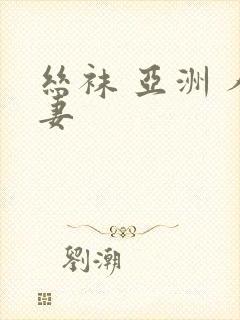 絲袜 亞洲
妻
劉潮